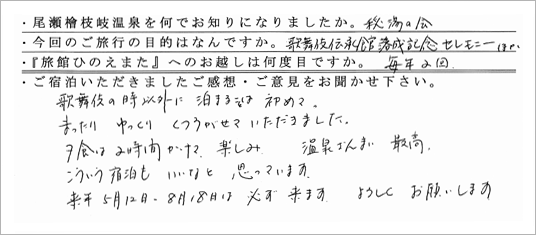 ・尾瀬檜枝岐温泉を何でお知りになりましたか。秘湯の会
・今回のご旅行の目的はなんですか。歌舞伎伝承館落成記念セレモニー
・『旅館ひのえまた』へのお越しは何度目ですか。毎年2回
・ご宿泊いただきましたご感想・ご意見をお聞かせ下さい。
歌舞伎の時以外に泊まるのは初めて。
まったりゆっくりくつろがせていただきました。
夕食は2時間かけて楽しみ 温泉ざんまい 最高。
こういう宿泊もいいなと思っています。
来年5月12日・8月18日は必ず来ます よろしくお願いします